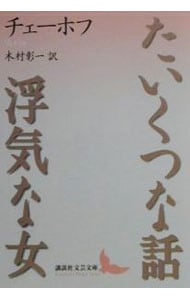 たいくつな話
浮気な女
チェーホフ
木村彰一 訳
講談社文芸文庫